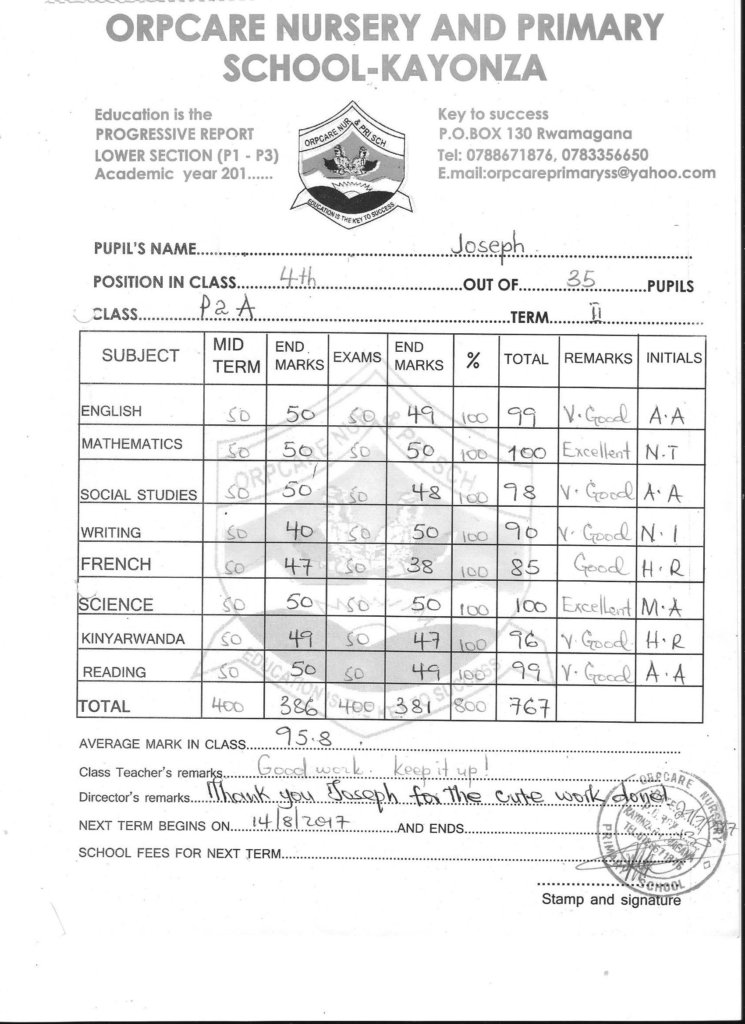 ORPCARE NURSERY AND PRIMARY
SCHOOL-KAYONZA
Education is the
PROGRESSIVE REPORT
LOWER SECTION (P1 - P3)
Academic year 201......
ORPCARE NUR & PRI SCH
EDUCATION IS THE KEY TO SUCCESS
Key to success
P.O.BOX 130 Rwamagana
Tel: 0788671876, 0783356650
E.mail:orpcareprimaryss@yahoo.com
PUPIL'S NAME Joseph
POSITION IN CLASS 4th OUT OF 35 PUPILS
CLASS P2A TERM II
SUBJECT MID TERM END MARKS EXAMS END MARKS % TOTAL REMARKS INITIALS
ENGLISH 50 50 50 49 100 99 V.Good A.A
MATHEMATICS 50 50 50 50 100 100 Excellent N.T
SOCIAL STUDIES 50 50 50 48 100 98 V.Good A.A
WRITING 50 40 50 50 100 90 V.Good N.I
FRENCH 50 47 50 38 100 85 Good H.R
SCIENCE 50 50 50 50 100 100 Excellent M.A
KINYARWANDA 50 49 50 47 100 96 V.Good H.R
READING 50 50 50 49 100 99 V.Good A.A
TOTAL 400 386 400 381 800 767
ORPCARE NUR & PRI SCH
EDUCATION IS THE KEY TO SUCCESS
AVERAGE MARK IN CLASS 95.8
Class Teacher's remarks Good work. Keep it up!
Dircector's remarks Thank you Joseph for the cute work done!
NEXT TERM BEGINS ON 14/8/2017 AND ENDS
SCHOOL FEES FOR NEXT TERM
ORPCARE NURSERY
PRIMARY SCHOOL
Stamp and signature